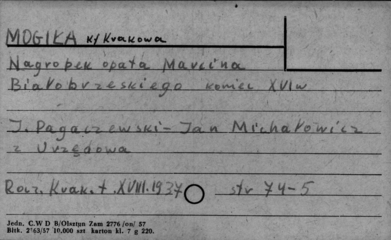 MOGIŁA k/Krakowa
Nagrobek opata Marcina
Białobrzeskiego koniec XVI w
J. Pagaczewski - Jan Michałowicz
z Urzędowa
Rocz. Krak. t. XVIII. 1937 str 74-5
Jedn. C.W D B/Olsztyn Zam 2776/on/ 57
Bitk. 2*63/57 10,000 szt karton kl. 7 g 220.